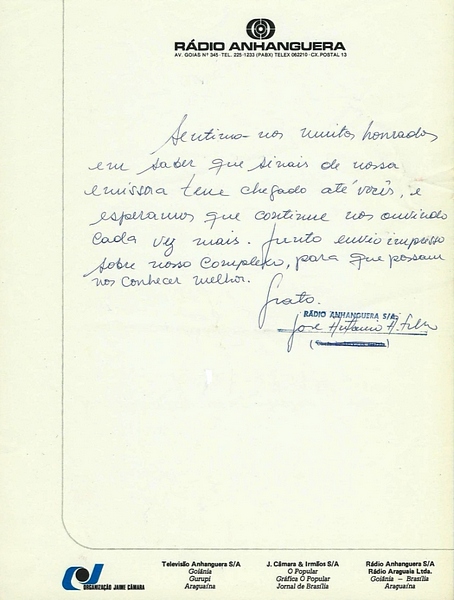 RÁDIO ANHANGUERA
AV. GOIÁS Nº 345 - TEL. 225-1233 (PABX) TELEX 062210 - CX. POSTAL 13
Sentimo-nos muitos honrados
em saber que sinais de nossa
emissora tem chegado até vocês, e
esperamos que continue nos ouvindo
cada vez mais. Junto envio impresso
sobre nosso Complexo, para que possam
nos conhecer melhor.
Grato.
RÁDIO ANHANGUERA S/A
José Antonio A. Filho
ORGANIZAÇÃO JAIME CÂMARA
Televisão Anhanguera S/A
Goiânia
Gurupi
Araguaína
J. Câmara & Irmãos S/A
O Popular
Gráfica O Popular
Jornal de Brasília
Rádio Anhanguera S/A
Rádio Araguaia Ltda
Goiânia - Brasília
Araguaína